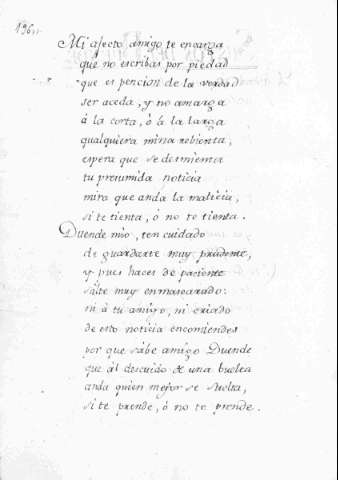 196
Mi afecto amigo te encarga
que no escribas por piedad
que es pencion de la verdad
ser aceda, y no amarga
à la corta, ò à la larga
qualquiera mina rebienta,
espera que se desmienta
tu presumida noticia
mira que anda la malicia,
si te tienta, ò no te tienta.
Duende mio, ten cuidado
de guardarte muy prudente,
y pues haces de paciente
salte muy enmascarado:
ni à tu amigo, ni criado
de esto noticia encomiendes
por que sabe amigo Duende
que àl descuido de una buelta
anda quien mejor se suelta,
si te prende, ò no te prende.